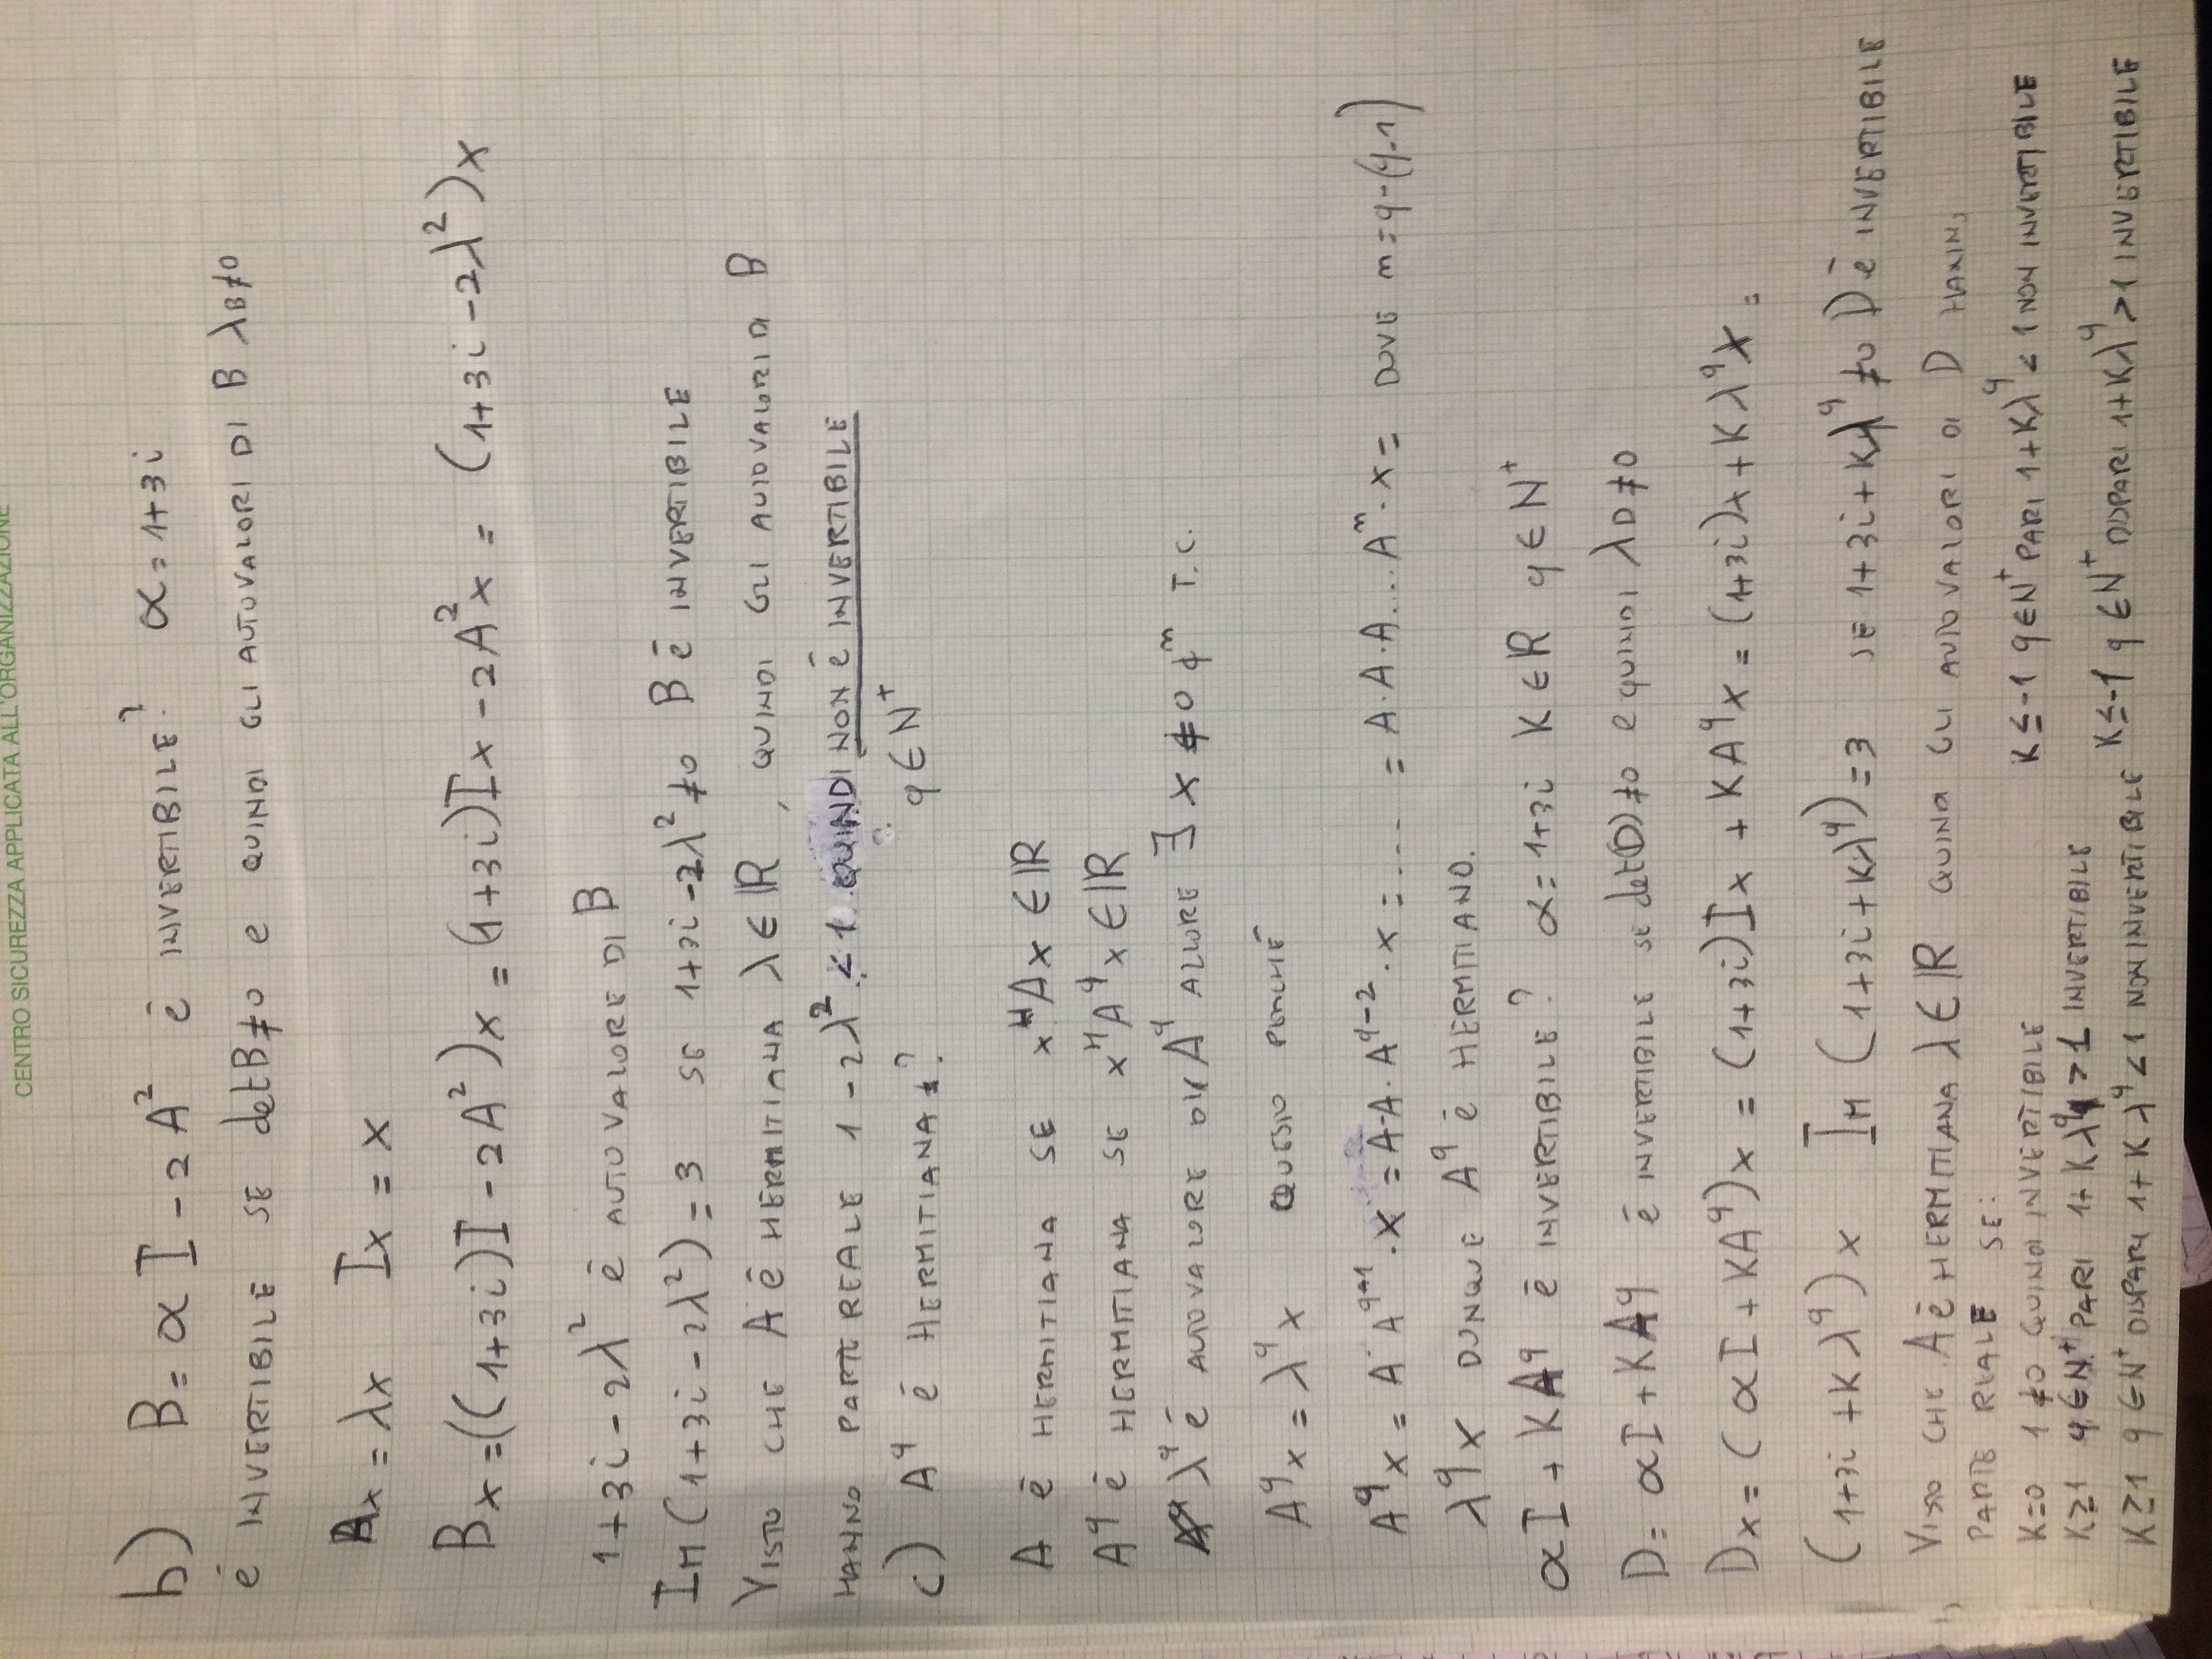 CENTRO SICUREZZA APPLICATA ALL'ORGANIZZAZIONE
b) B = α I - 2 A² è INVERTIBILE? α = 1+3i
è INVERTIBILE SE det B≠0 e QUINDI GLI AUTOVALORI DI B λB≠0
Ax = λx Ix = x
Bx = ((1+3i)I - 2A²)x = (1+3i)Ix - 2A²x = (1+3i - 2λ²)x
1+3i - 2λ² è AUTOVALORE DI B
IM (1+3i - 2λ²) = 3 SE 1+3i - 2λ² ≠0 B è INVERTIBILE
VISTO CHE A è HERMITIANA λ ∈ ℝ, QUINDI GLI AUTOVALORI DI B
HANNO PARTE REALE 1 - 2λ² < 1 QUINDI NON è INVERTIBILE
c) A^q è HERMITIANA? q ∈ N⁺
A è HERMITIANA SE x^H A x ∈ ℝ
A^q è HERMITIANA SE x^H A^q x ∈ ℝ
λ^q è AUTOVALORE DI A^q ALLORE ∃ x ≠ 0 ¢^m T.C.
A^q x = λ^q x QUESTO PERCHÉ
A^q x = A · A^q+1 · x = A·A·A^q-2 · x = .... = A·A·A....A^m · x = DOVE m = q-(q-1)
λ^q x DUNQUE A^q è HERMITIANO.
αI + KA^q è INVERTIBILE? α = 1+3i K ∈ ℝ q ∈ N⁺
D = αI + KA^q è INVERTIBILE SE det(D)≠0 e QUINDI λD≠0
Dx = (αI + KA^q)x = (1+3i)Ix + KA^q x = (1+3i)x + Kλ^q x =
(1+3i + Kλ^q)x IM (1+3i + Kλ^q) = 3 SE 1+3i + Kλ^q ≠0 D è INVERTIBILE
VISTO CHE A è HERMITIANA λ ∈ ℝ QUINDI GLI AUTOVALORI DI D HANN,
PARTE REALE SE:
K=0 1≠0 QUINDI INVERTIBILE K ≤ -1 q ∈ N⁺ PARI 1+Kλ^q < 1 NON INVERTIBILE
K≥1 q ∈ N⁺ PARI 1+Kλ^q > 1 INVERTIBILE
K≥1 q ∈ N⁺ DISPARI 1+Kλ^q < 1 NON INVERTIBILE K ≤ -1 q ∈ N⁺ DISPARI 1+Kλ^q > 1 INVERTIBILE